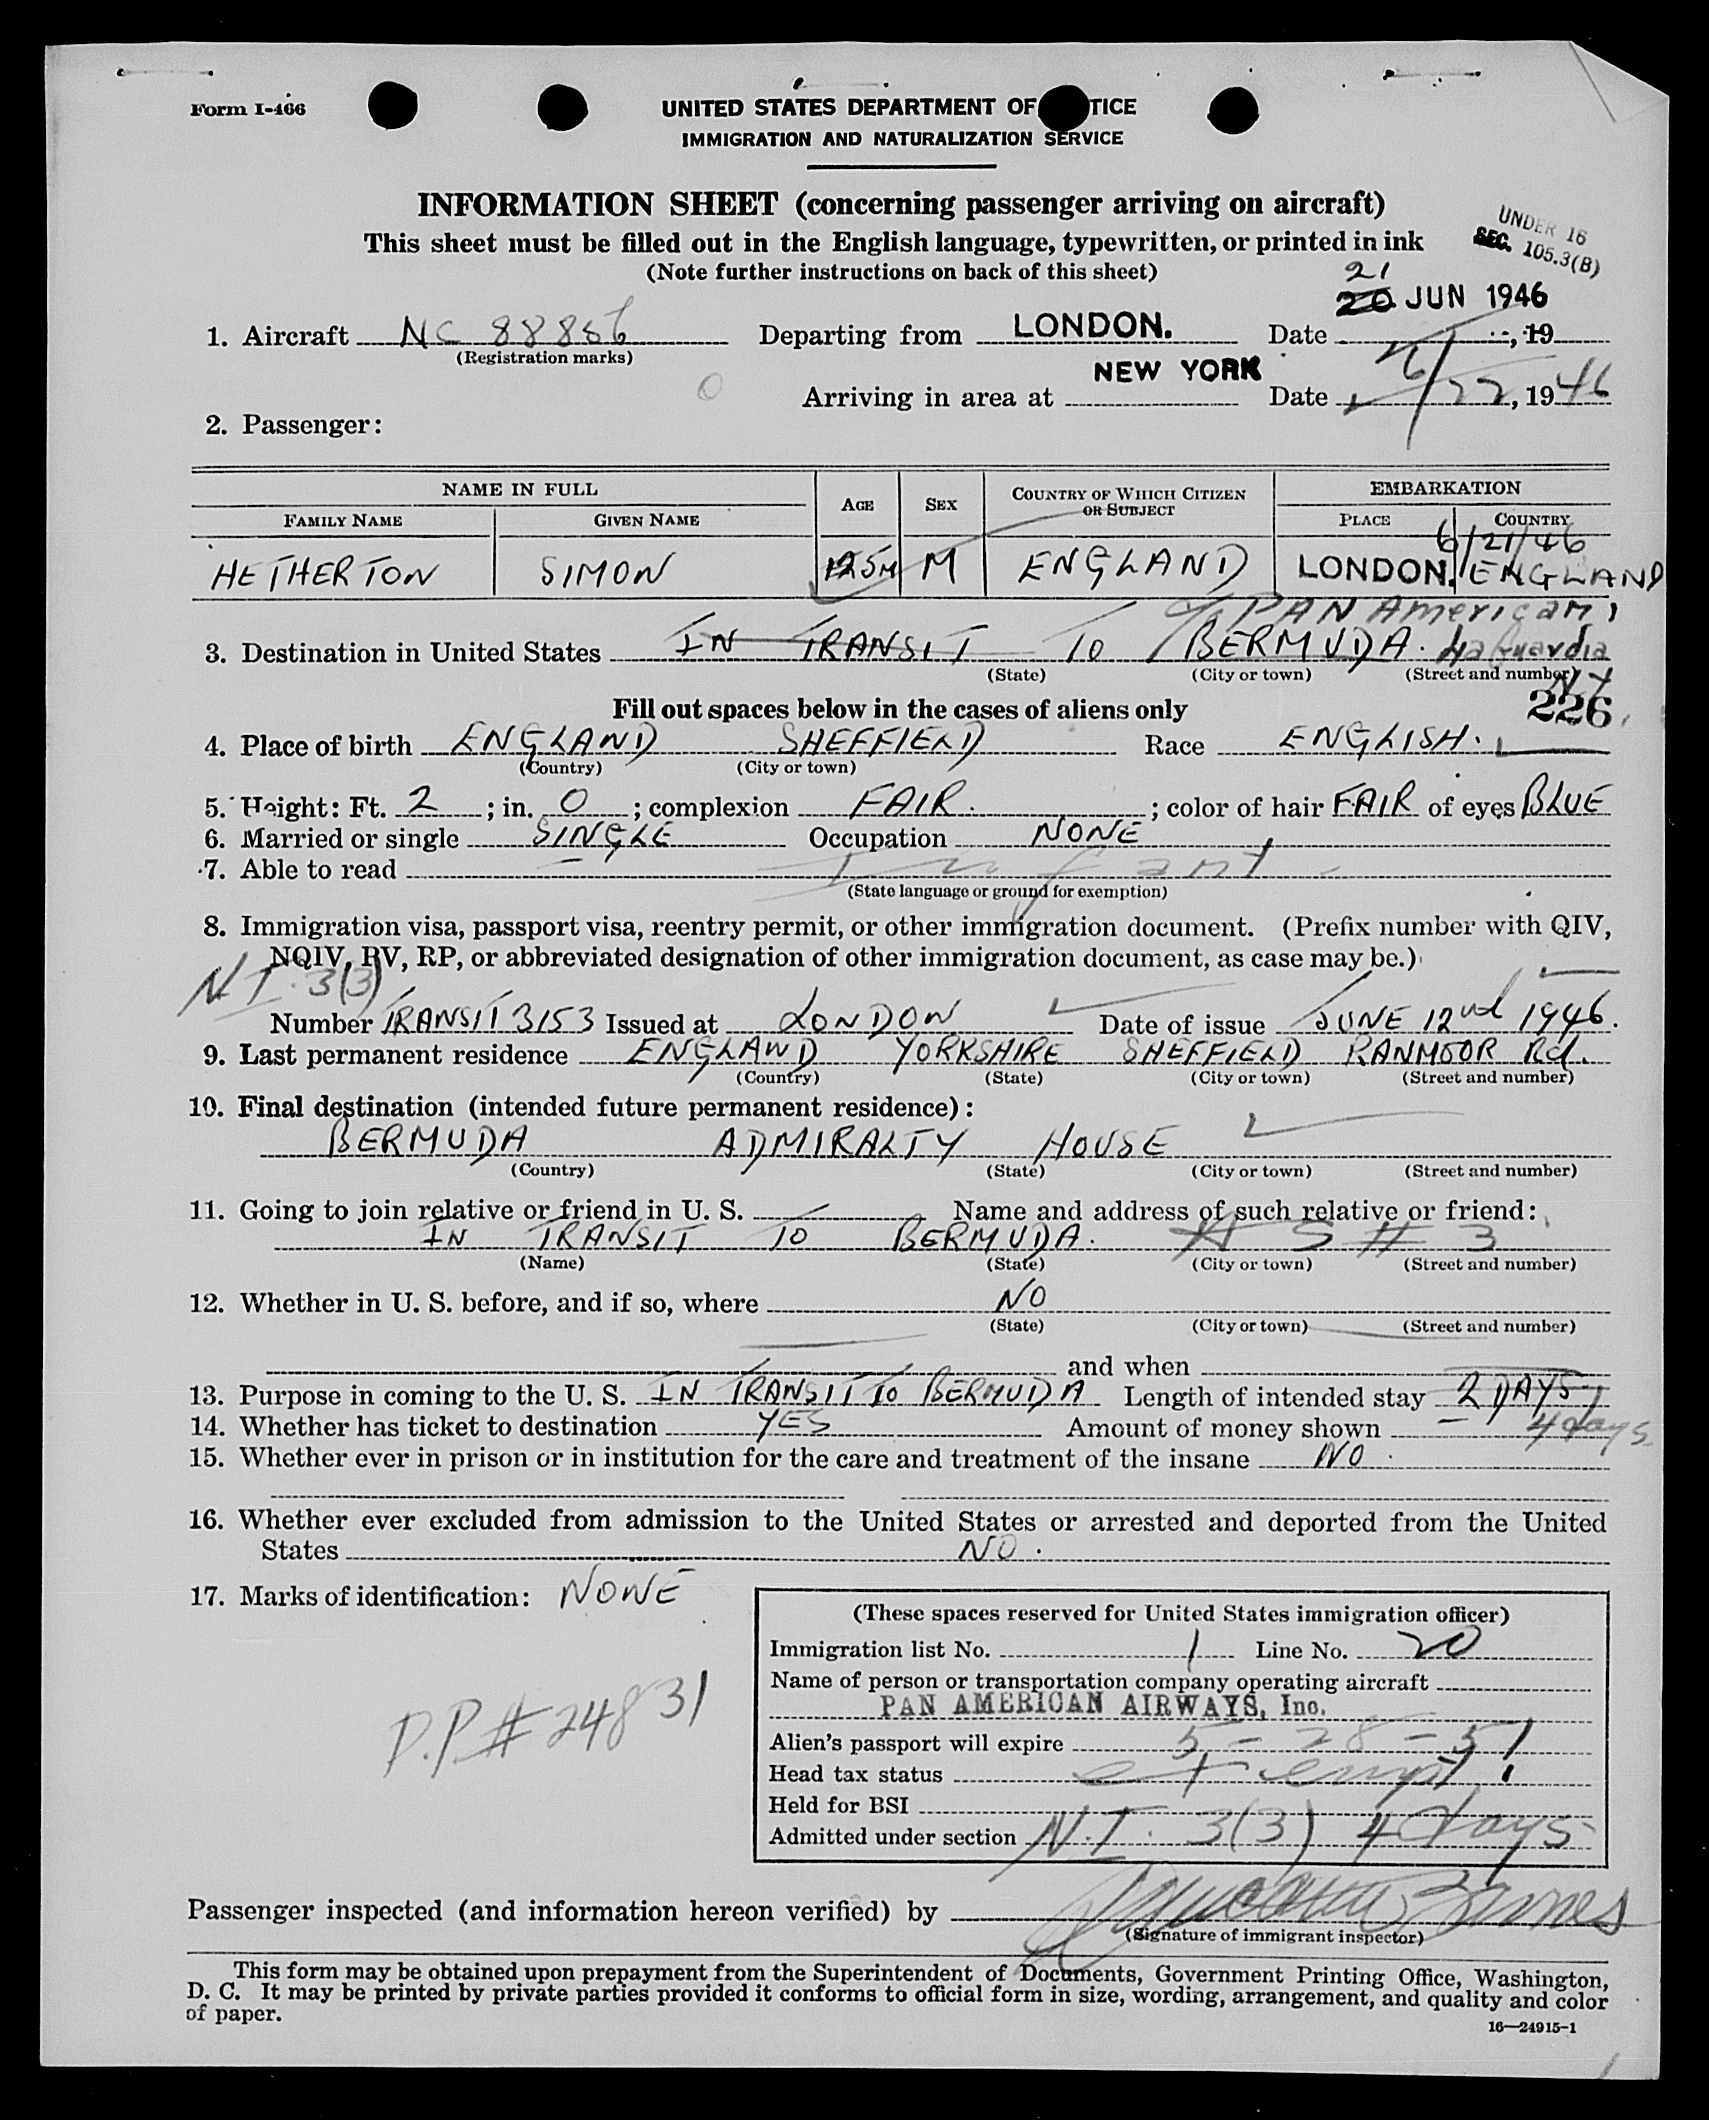 Form I-466
UNITED STATES DEPARTMENT OF TICE
IMMIGRATION AND NATURALIZATION SERVICE
INFORMATION SHEET (concerning passenger arriving on aircraft)
This sheet must be filled out in the English language, typewritten, or printed in ink
(Note further instructions on back of this sheet)
UNDER 16
SEC. 105.3(B)
21
20 JUN 1946
1. Aircraft NC 88886 Departing from LONDON. Date , 19
(Registration marks)
Arriving in area at NEW YORK Date 6/22, 1946
2. Passenger:
NAME IN FULL AGE SEX COUNTRY OF WHICH CITIZEN OR SUBJECT EMBARKATION
FAMILY NAME GIVEN NAME PLACE COUNTRY
6/21/46
HETHERTON SIMON M ENGLAND LONDON. ENGLAND
c/o PAN American,
3. Destination in United States IN TRANSIT TO BERMUDA. LaGuardia
(State) (City or town) (Street and number) N.Y
226
Fill out spaces below in the cases of aliens only
4. Place of birth ENGLAND SHEFFIELD Race ENGLISH.
(Country) (City or town)
5. Height: Ft. 2; in. 0; complexion FAIR.; color of hair FAIR of eyes BLUE
6. Married or single SINGLE Occupation NONE
7. Able to read Infant
(State language or ground for exemption)
8. Immigration visa, passport visa, reentry permit, or other immigration document. (Prefix number with QIV,
NQIV, RV, RP, or abbreviated designation of other immigration document, as case may be.)
N.I. 3(3)
Number TRANSIT 3153 Issued at LONDON Date of issue JUNE 12nd 1946.
9. Last permanent residence ENGLAND YORKSHIRE SHEFFIELD RANMOOR Rd.
(Country) (State) (City or town) (Street and number)
10. Final destination (intended future permanent residence):
BERMUDA ADMIRALTY HOUSE
(Country) (State) (City or town) (Street and number)
11. Going to join relative or friend in U. S. Name and address of such relative or friend:
IN TRANSIT TO BERMUDA. AS # 3
(Name) (State) (City or town) (Street and number)
12. Whether in U. S. before, and if so, where NO
(State) (City or town) (Street and number)
and when
13. Purpose in coming to the U. S. IN TRANSIT TO BERMUDA Length of intended stay 2 DAYS
14. Whether has ticket to destination YES Amount of money shown 4 days
15. Whether ever in prison or in institution for the care and treatment of the insane NO.
16. Whether ever excluded from admission to the United States or arrested and deported from the United
States NO.
17. Marks of identification: NONE
P.P.# 24831
(These spaces reserved for United States immigration officer)
Immigration list No. 1 Line No. 20
Name of person or transportation company operating aircraft
PAN AMERICAN AIRWAYS, Inc.
Alien's passport will expire 5-28-51
Head tax status exempt
Held for BSI
Admitted under section N.I. 3(3) 4 days
Passenger inspected (and information hereon verified) by Barnes
(Signature of immigrant inspector)
This form may be obtained upon prepayment from the Superintendent of Documents, Government Printing Office, Washington,
D. C. It may be printed by private parties provided it conforms to official form in size, wording, arrangement, and quality and color
of paper.
16—24915-1